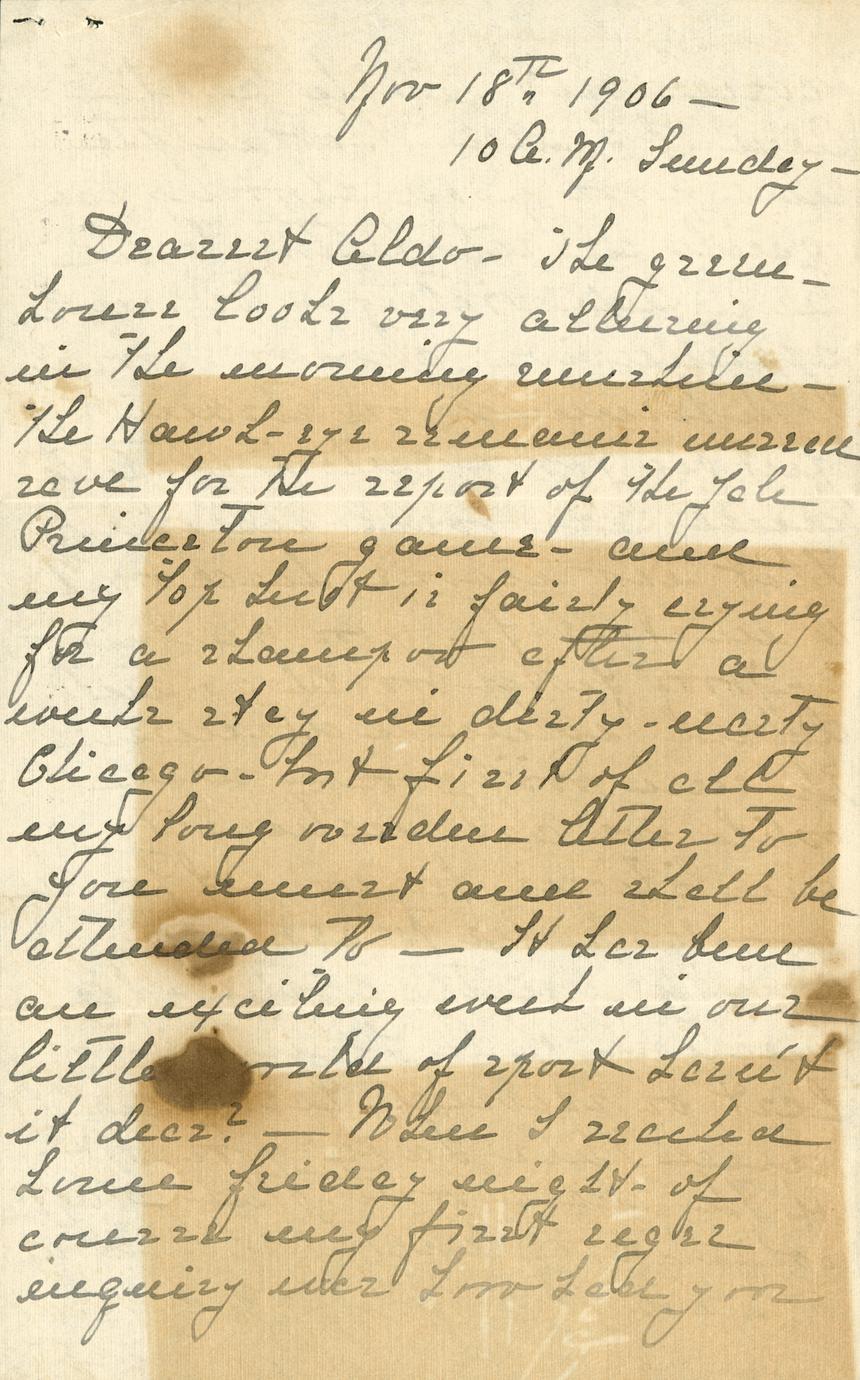 Nov 18th 1906 —
10 A. M. Sunday —
Dearest Aldo - The green-
house looks very alluring
in the morning sunshine -
The Hawk-eye remains unread
save for the report of the Yale
Princeton game - and
my top knot is fairly crying
for a shampoo after a
weeks stay in dirty-nasty
Chicago - but first of all
my long overdue letter to
you must and shall be
attended to — It has been
an exciting week in our
little world of sport hasn't
it dear? — When I reached
home friday night - of
course my first eager
inquiry was how had your